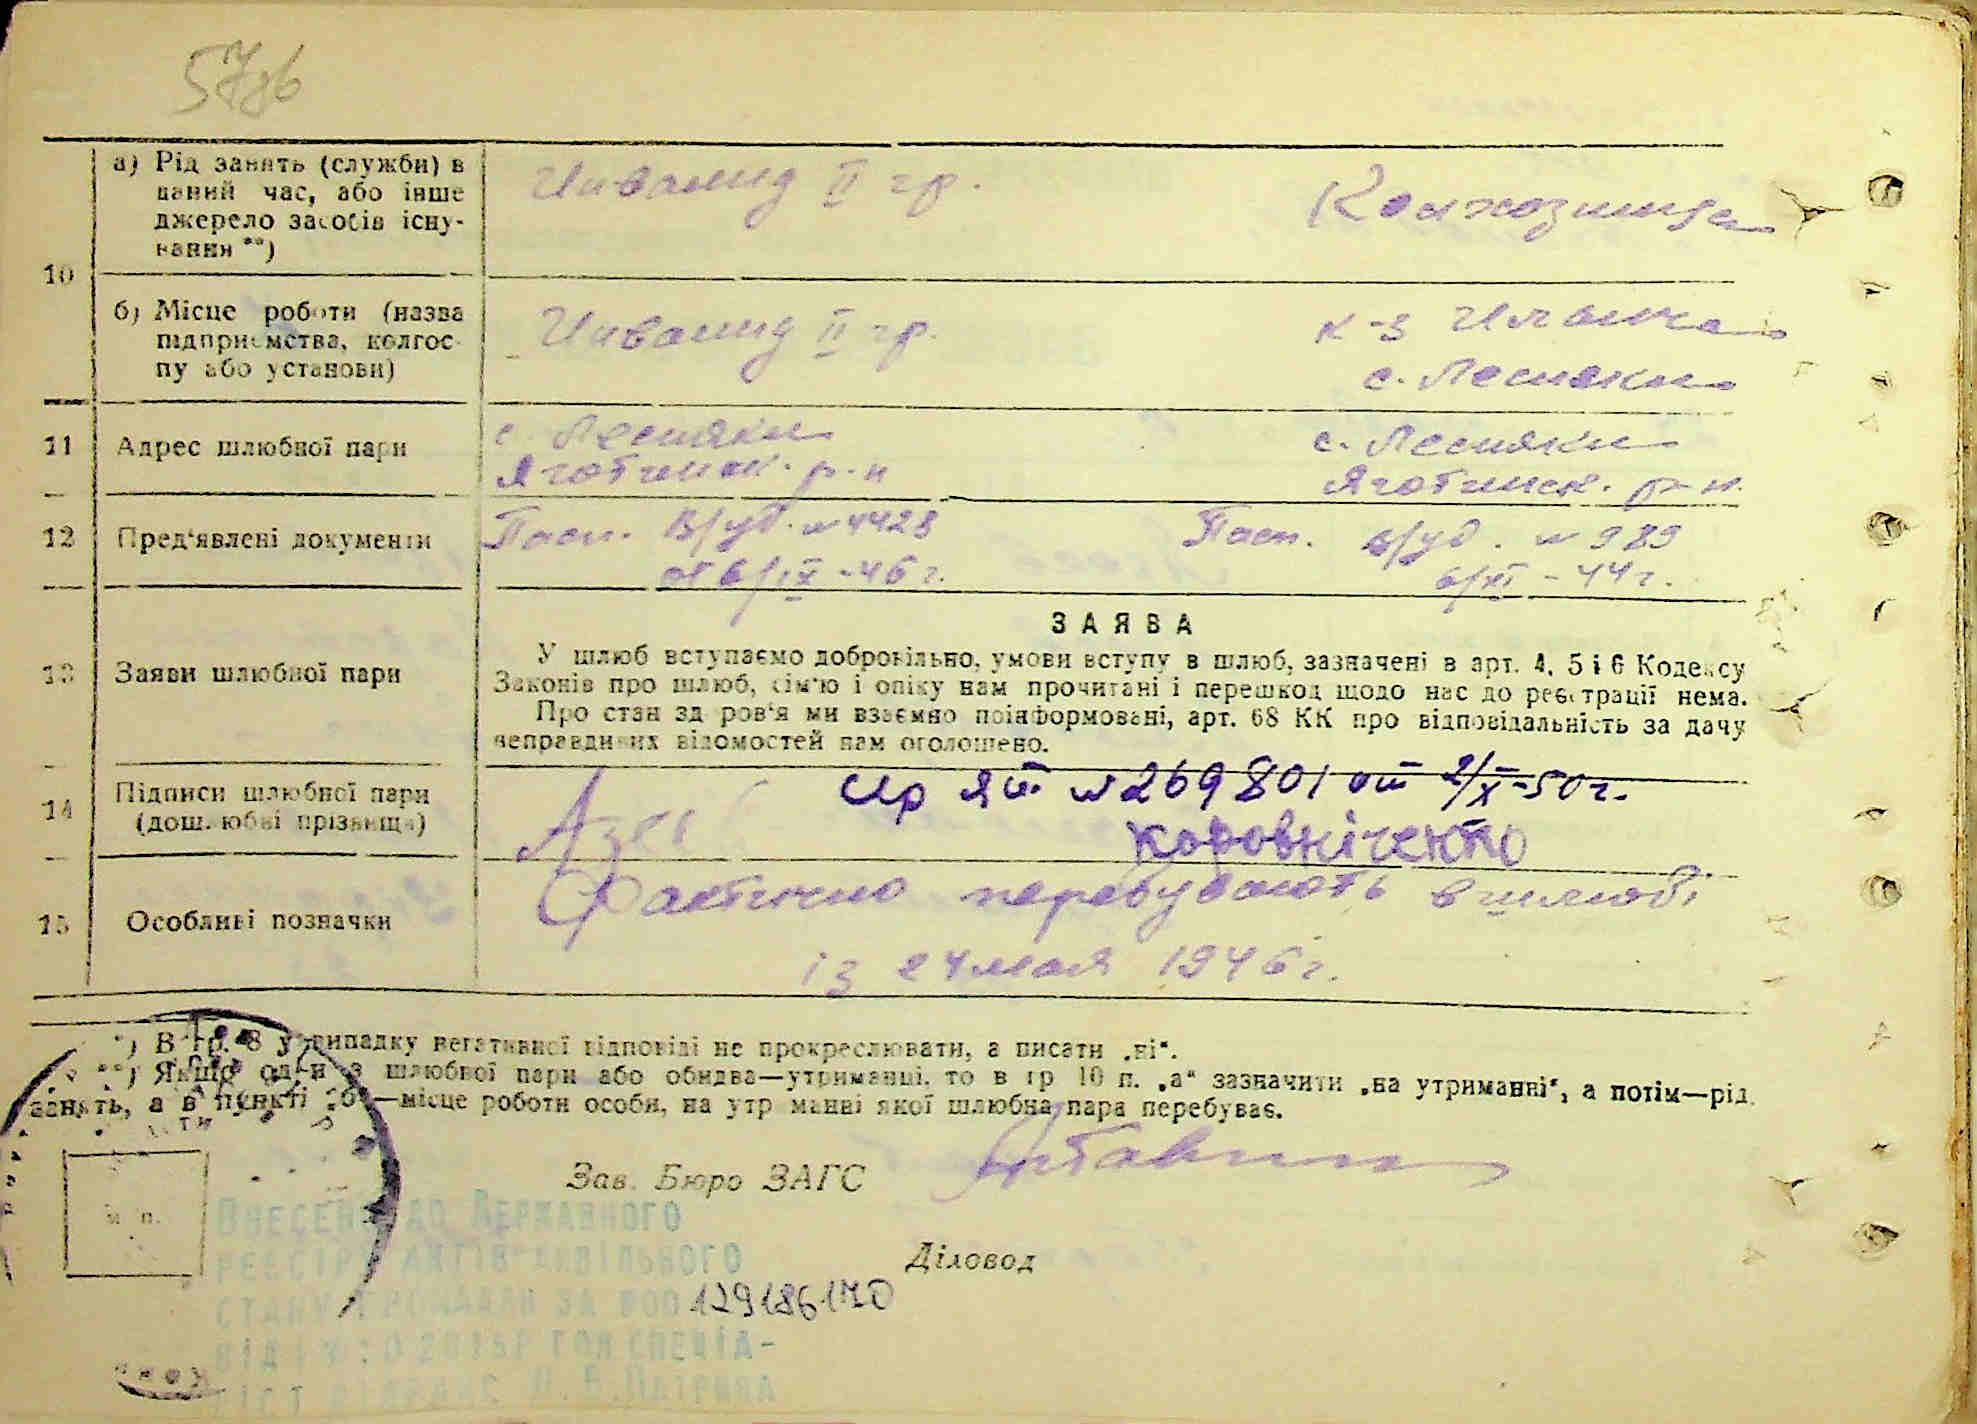 57зв
10
а) Рід занять (служби) в
даний час, або інше
джерело засобів існу-
вання **)
Инвалид II гр.
Колхозница
б) Місце роботи (назва
підприємства, колгос-
пу або установи)
Инвалид II гр.
к-з Ильича
с. Лесняки
11
Адрес шлюбної пари
с. Лесняки
Яготинск. р-н
с. Лесняки
Яготинск. р-н.
12
Пред'явлені документи
Пасп. В/уд. № 4428
от 6/IX-46 г.
Пасп. в/уд. № 989
6/XI-44 г.
13
Заяви шлюбної пари
ЗАЯВА
У шлюб вступаємо добровільно, умови вступу в шлюб, зазначені в арт. 4, 5 і 6 Кодексу
Законів про шлюб, сім'ю і опіку нам прочитані і перешкод щодо нас до реєстрації нема.
Про стан здоров'я ми взаємно поінформовані, арт. 68 КК про відповідальність за дачу
неправдивих відомостей нам оголошено.
14
Підписи шлюбної пари
(дошлюбні прізвища)
№ 269801 от 2/X-50 г.
Коровніченко
15
Особливі позначки
Фактично перебувають в шлюбі
із 24 мая 1946 г.
*) В гр. 8 у випадку негативної відповіді не прокреслювати, а писати „ні“.
**) Якщо один з шлюбної пари або обидва—утриманці, то в гр 10 п. „а“ зазначити „на утриманні“, а потім—рід
занять, а в пункті „б“—місце роботи особи, на утриманні якої шлюбна пара перебуває.
Зав. Бюро ЗАГС
м. п.
Діловод
Внесено до Державного
реєстру актів цивільного
стану громадян за
12918617